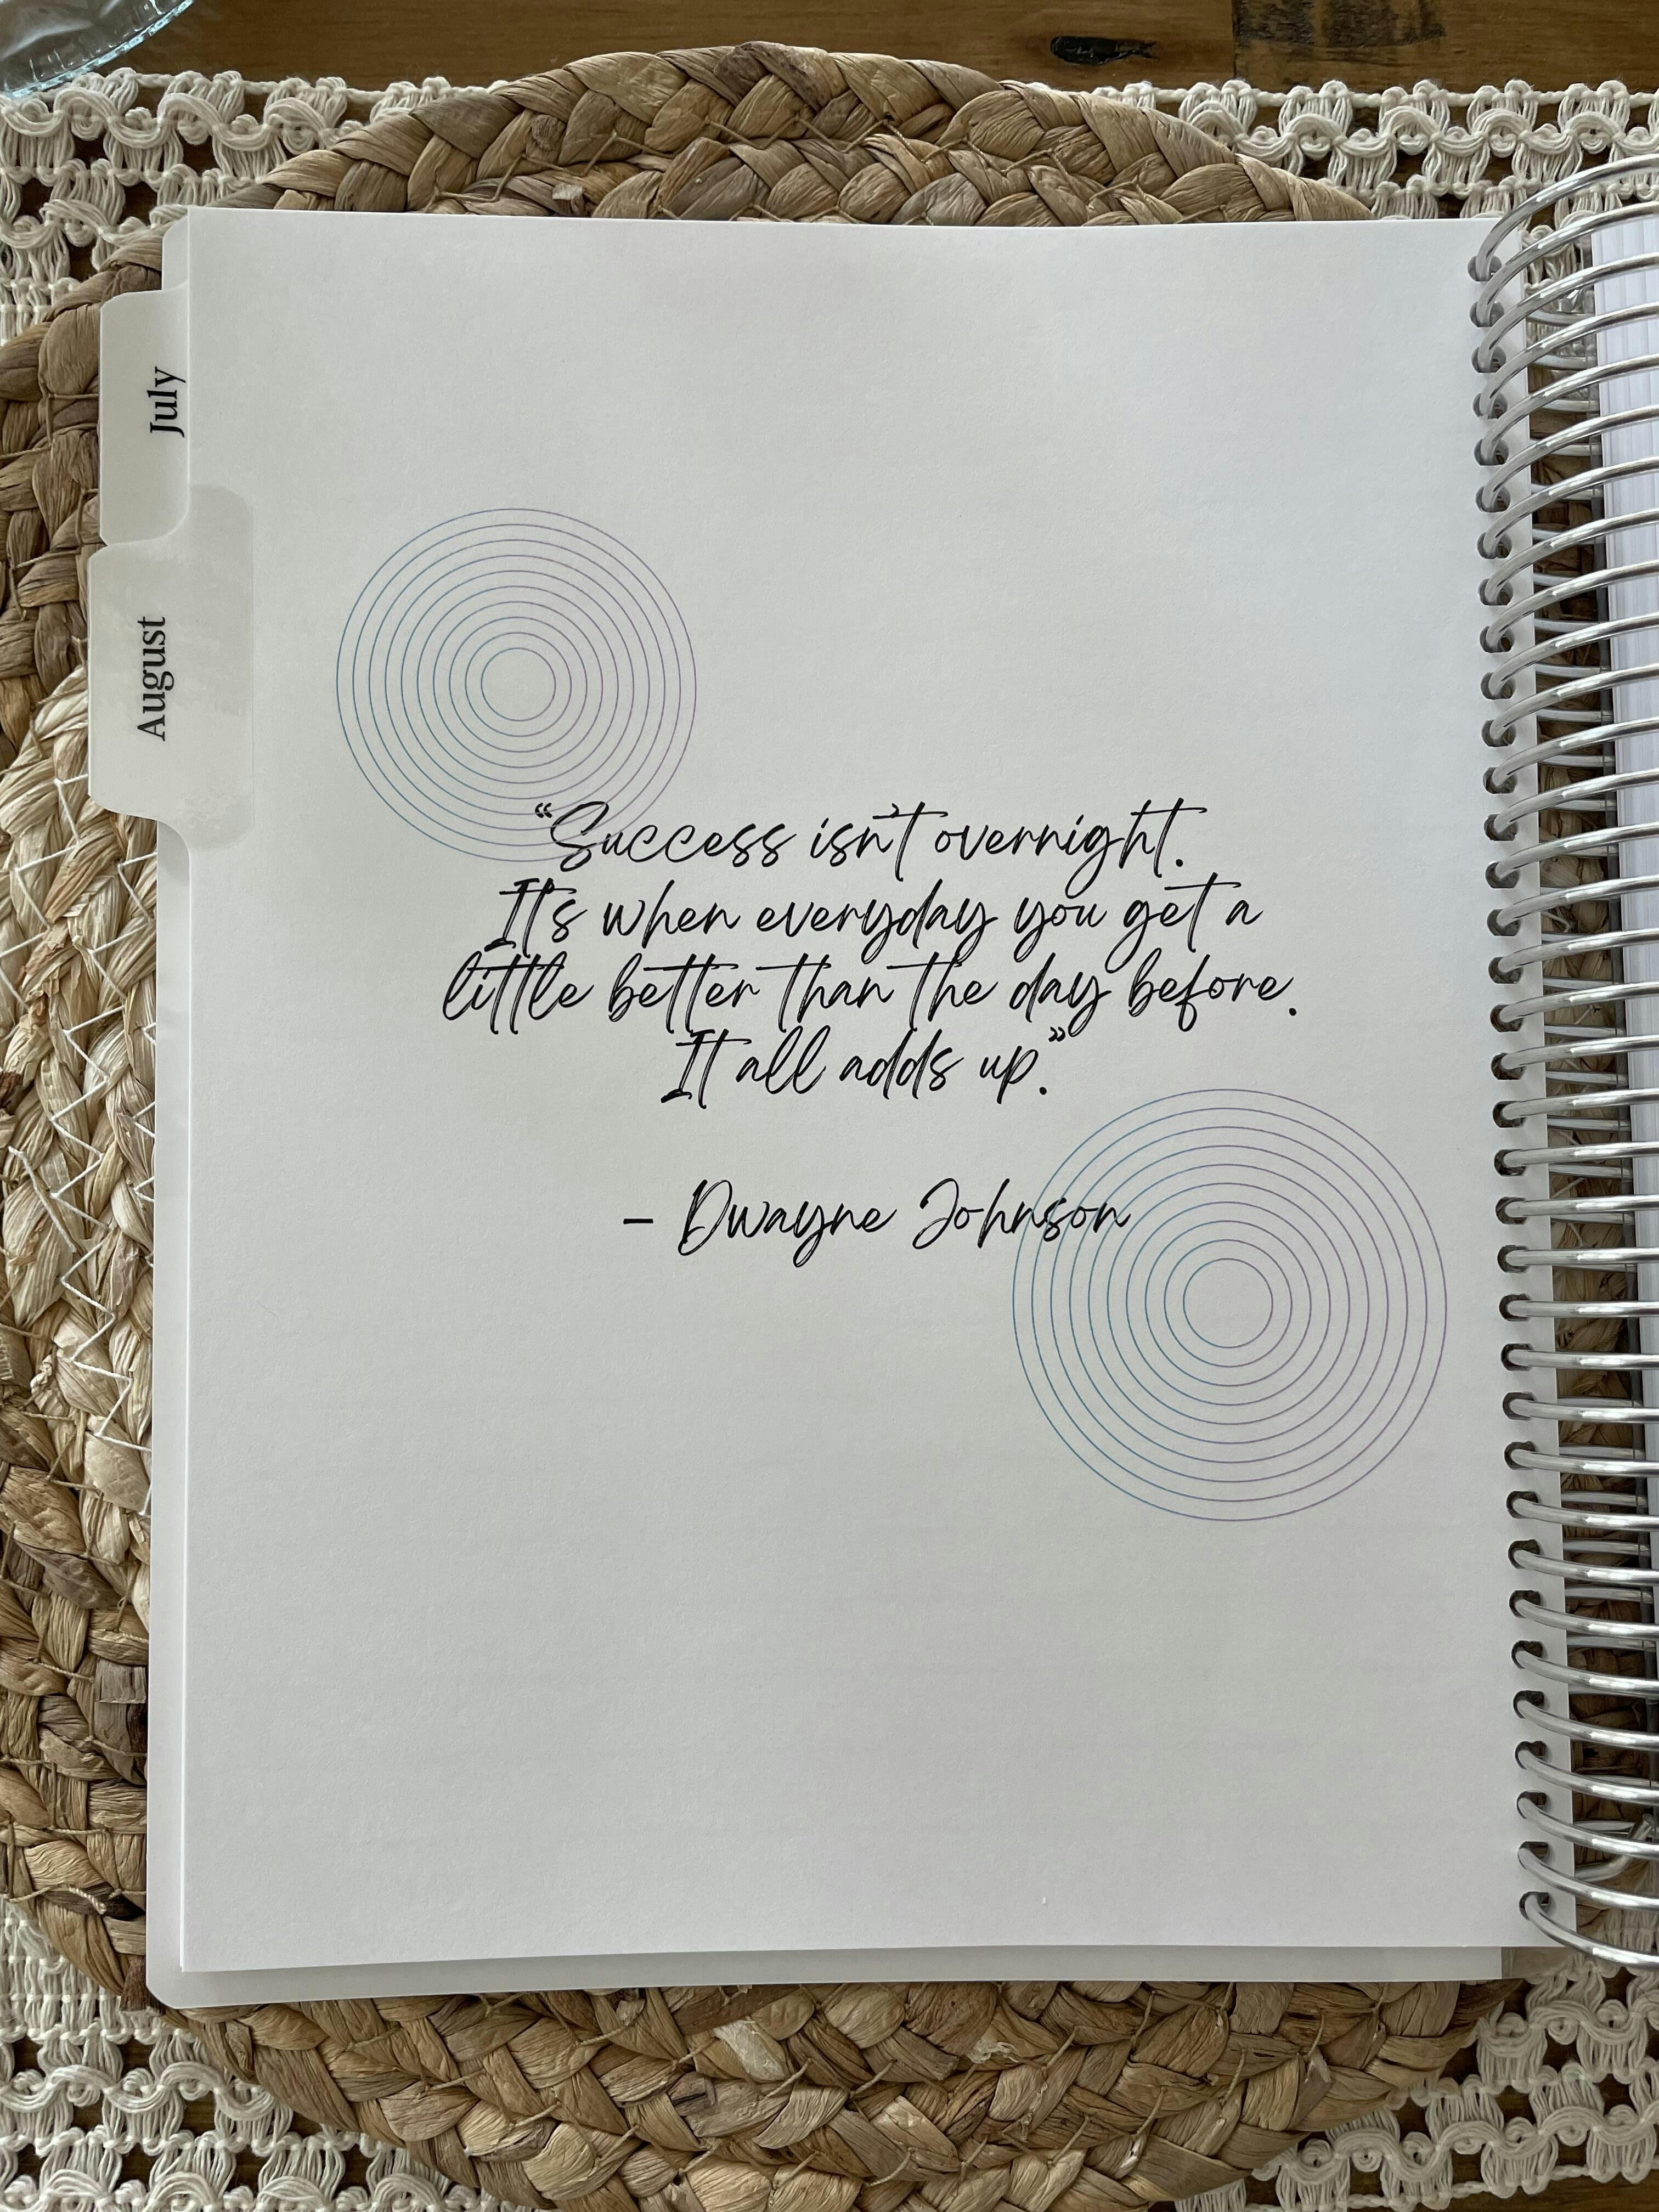 July
August
“Success isn't overnight.
It's when everyday you get a
little better than the day before.
It all adds up.”
– Dwayne Johnson